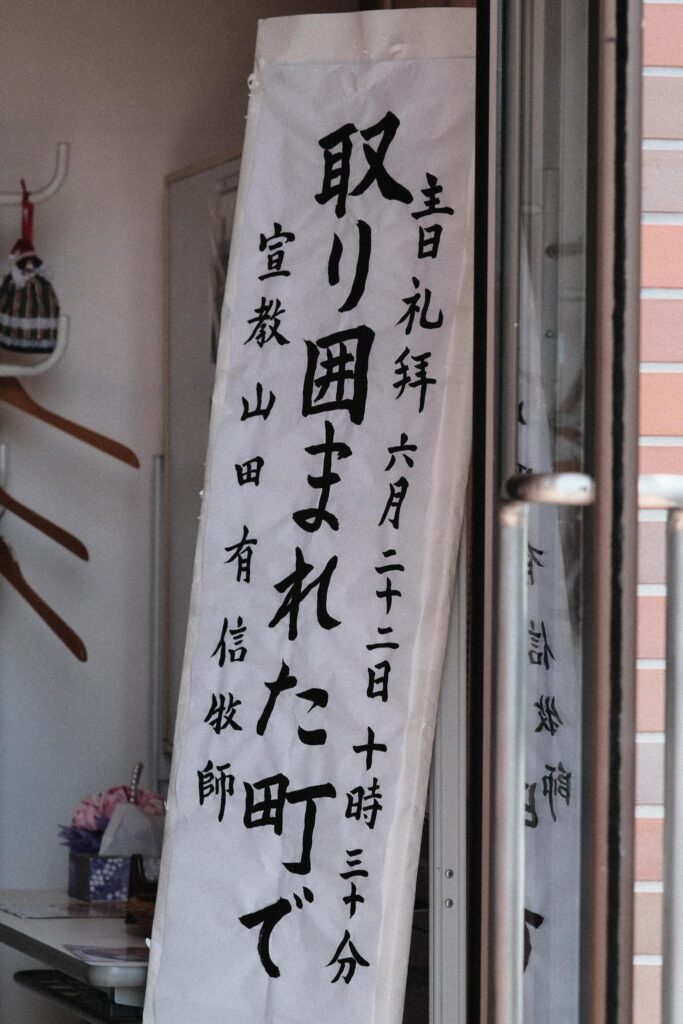 主日礼拝 六月二十二日 十時三十分
取り囲まれた町で
宣教 山田有信牧師